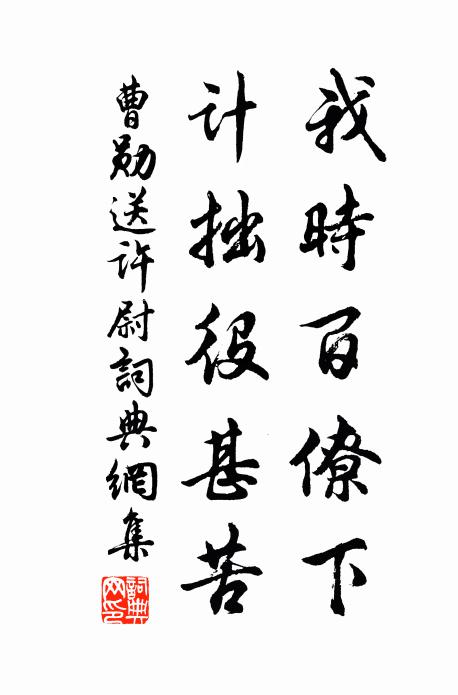 我時百僚下
計拙役甚苦
曹勛送許尉詞典網集
詞典网印